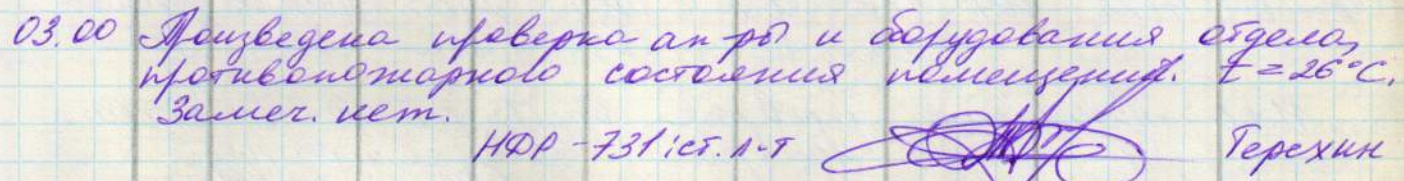 03.00 Произведена проверка ап-ры и оборудования отдела,
противопожарного состояния помещений. t = 26°C.
Замеч. нет.
НФР-731 ; ст. л-т Терехин